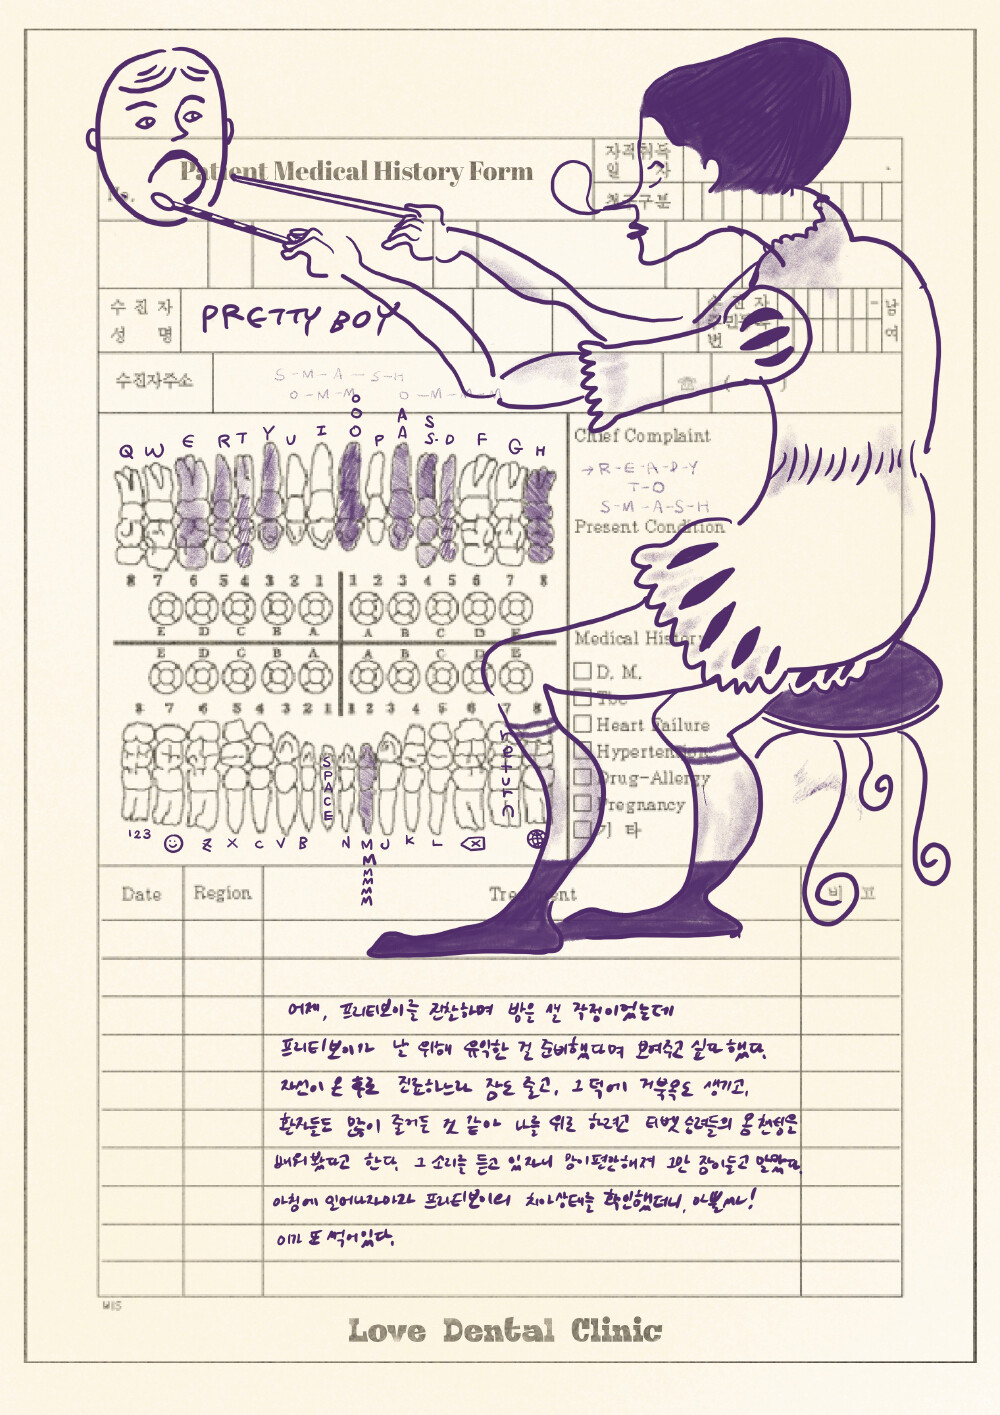 Patient Medical History Form
No.
자격취득
일 자
청구구분
수 진 자
성 명
PRETTY BOY
수 진 자
번
남
여
수진자주소
S-M-A-S-H
O-M-M O-M-M-M
☎ ( )
O
O A S
Q W E R T Y U I O P A S-D F G H
8 7 6 5 4 3 2 1 1 2 3 4 5 6 7 8
E D C B A A B C D E
E D C B A A B C D E
8 7 6 5 4 3 2 1 1 2 3 4 5 6 7 8
SPACE
return
123 Z X C V B N M J K L
M
M
M
M
M
Chief Complaint
→R-E-A-D-Y
T-O
S-M-A-S-H
Present Condition
Medical History
D. M.
Tbc
Heart Failure
Hypertension
Drug-Allergy
Pregnancy
기 타
Date Region Treatment 비 고
어제, 프리티보이를 관찰하며 밤을 샐 작정이었는데
프리티보이가 날 위해 음악한 걸 준비했다며 보여주고 싶다 했다.
자선이 온 후로 진료하느라 잠도 줄고, 그 덕에 거북목도 생기고,
환자들도 많이 줄어든 것 같아 나를 위로 하려고 티벳 승려들의 옴 천성을
배워봤다고 한다. 그 소리를 듣고 있자니 맘이 편안해져 그만 잠이들고 말았다.
아침에 일어나자마자 프리티보이의 치아상태를 확인했더니, 아뿔싸!
이가 또 썩어있다.
MIS
Love Dental Clinic